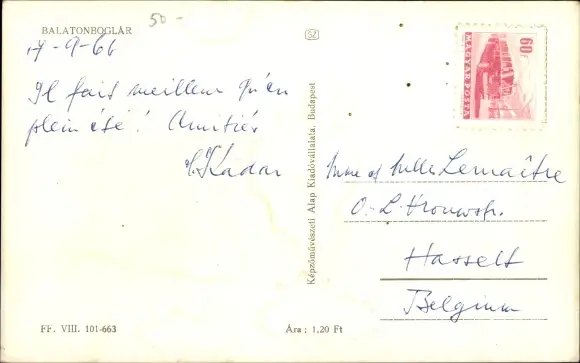 BALATONBOGLÁR
50-
17-9-66
Il fait meilleur qu'en
plein été! Amitiés
Kadar
Képzőművészeti Alap Kiadóvállalata, Budapest
60 f
MAGYAR POSTA
Mme et Mlle Lemaître
O.-L. Vrouwstr.
Hasselt
Belgium
FF. VIII. 101-663
Ára: 1,20 Ft